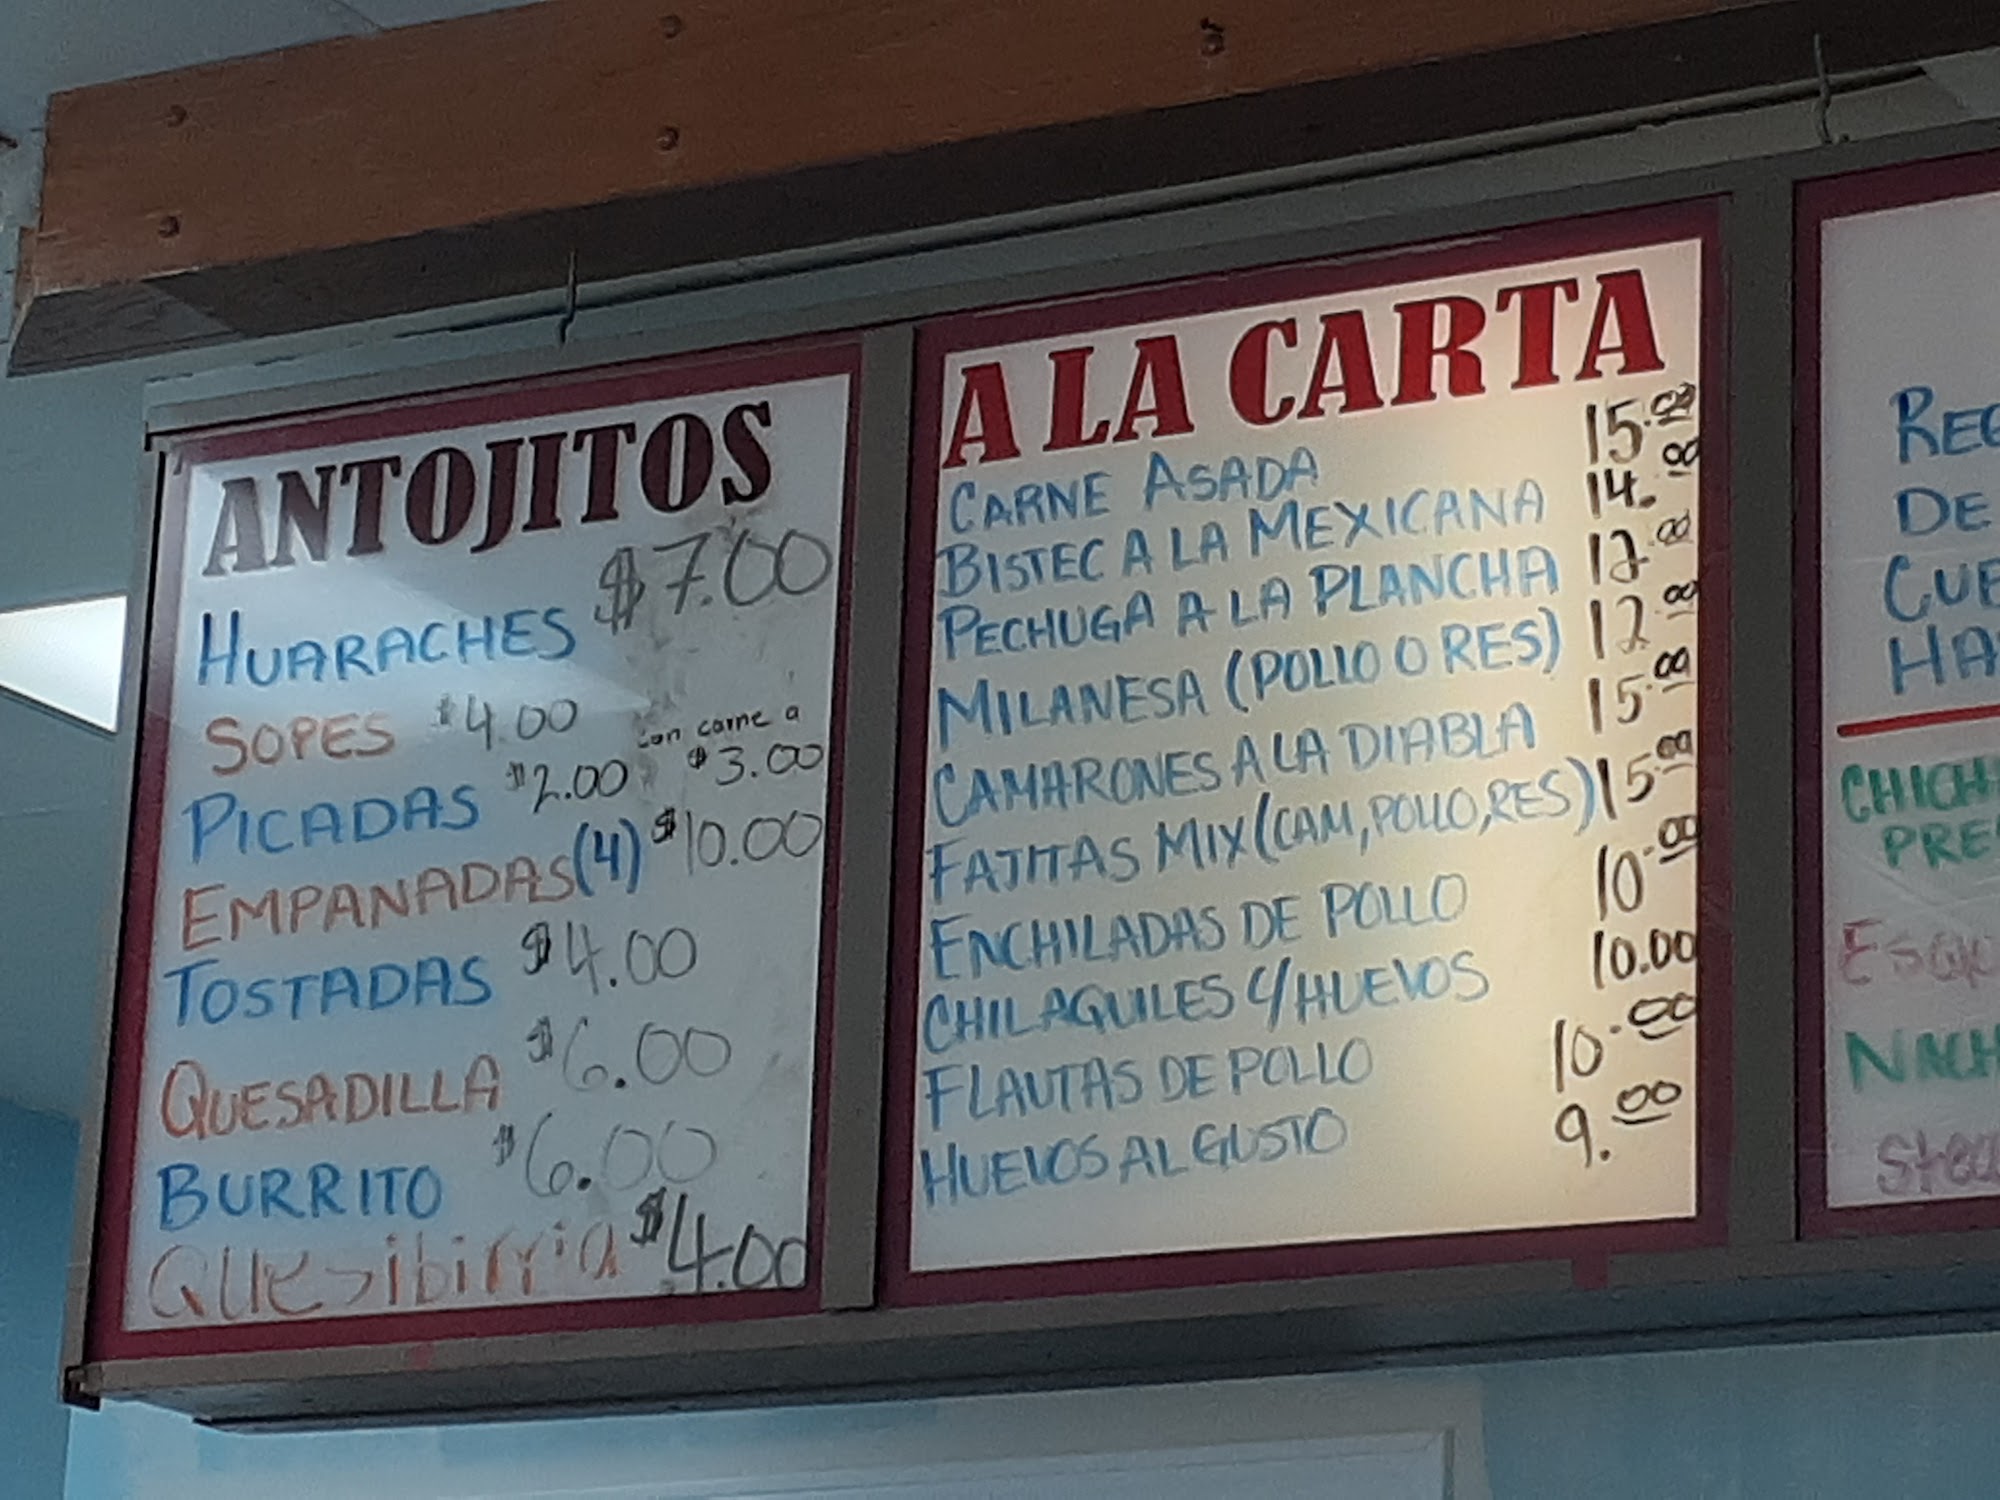 ANTOJITOS
HUARACHES $7.00
SOPES $4.00
con carne a
PICADAS $2.00 $3.00
EMPANADAS(4) $10.00
TOSTADAS $4.00
QUESADILLA $6.00
BURRITO $6.00
Quesibirria $4.00
A LA CARTA
CARNE ASADA 15.00
BISTEC A LA MEXICANA 14.00
PECHUGA A LA PLANCHA 12.00
MILANESA (POLLO O RES) 12.00
CAMARONES A LA DIABLA 15.00
FAJITAS MIX (CAM, POLLO, RES) 15.00
ENCHILADAS DE POLLO 10.00
CHILAQUILES C/HUEVOS 10.00
FLAUTAS DE POLLO 10.00
HUEVOS AL GUSTO 9.00
DE